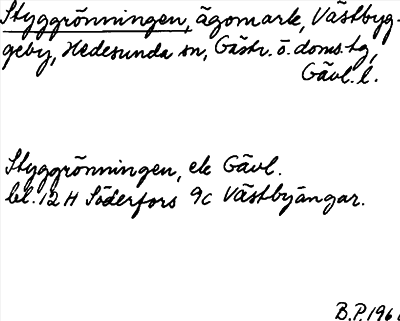 Styggrönningen, ägomark, Västbyg-
geby, Hedesunda sn, Gästr. ö. doms.tg,
Gävl. l.
Styggrönningen, ek Gävl.
bl. 12 H Söderfors 9c Västbyängar.
B.P. 196